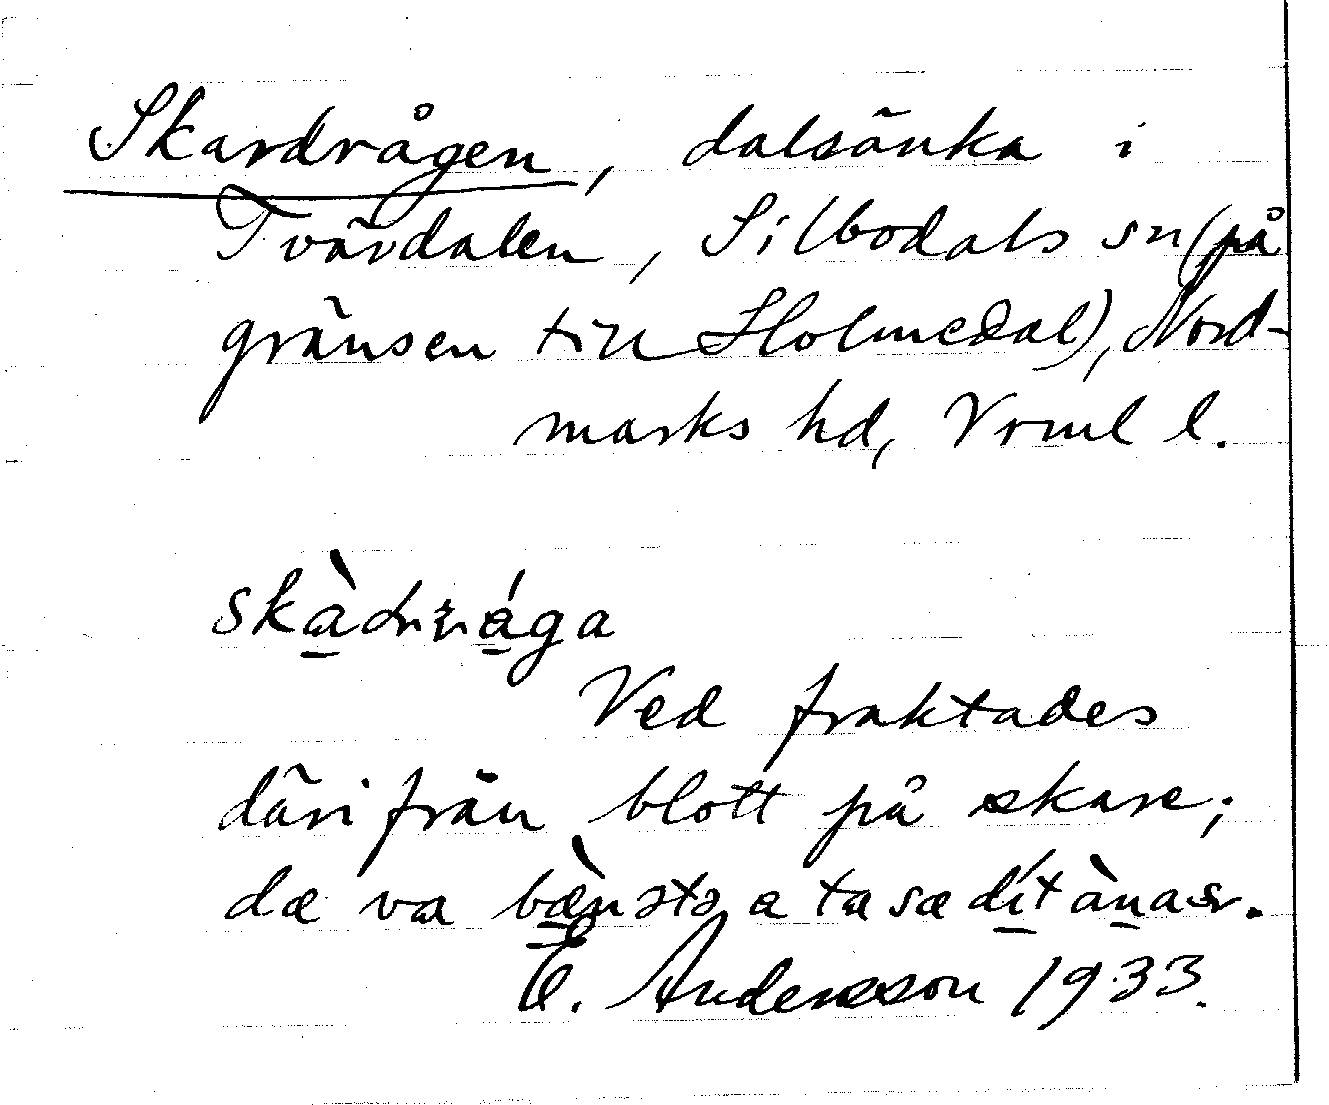 Skardrågen, dalsänka i
Tvärdalen, Silbodals sn (på
gränsen till Holmedal), Nord-
marks hd, Vrml l.
skàdrága
Ved fraktades
därifrån blott på skare;
dæ va bæ̀nstə a ta sæ dít ànasr.
E. Andersson 1933.